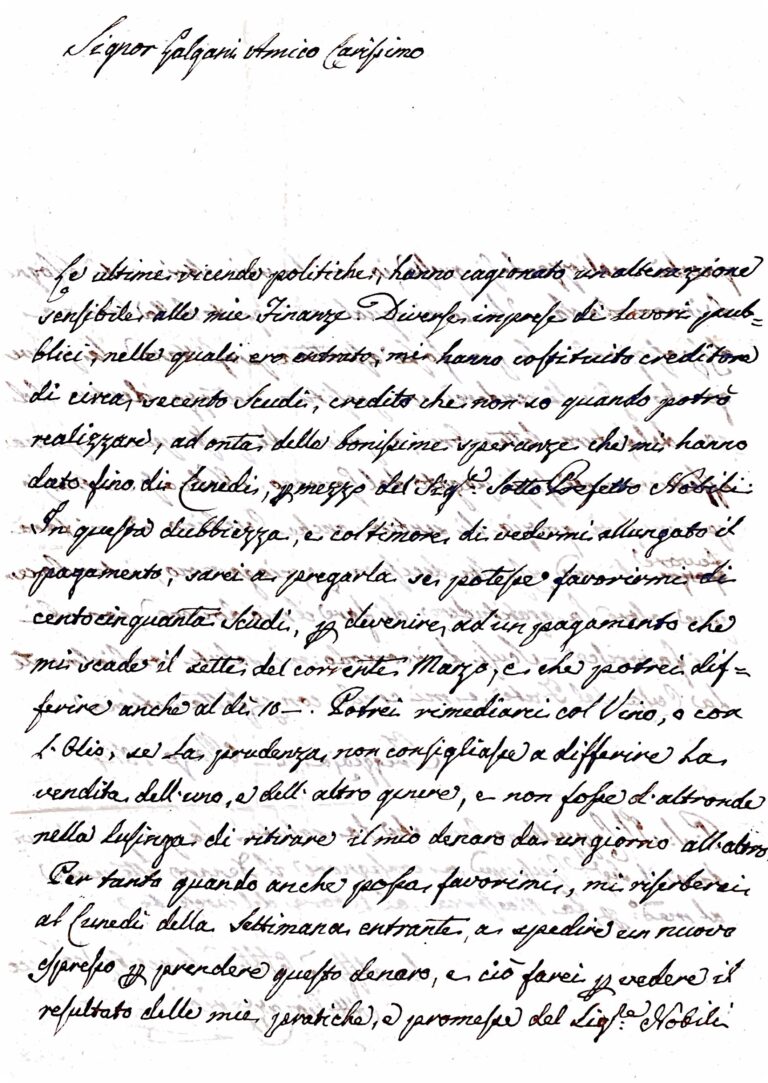 Signor Galgani Amico Carissimo
Le ultime vicende politiche, hanno cagionato un alterazione
sensibile alle mie Finanze. Diverse imprese di Lavori pub=
blici, nelle quali ero entrato, mi hanno costituito creditore
di circa secento Scudi, credito che non so quando potrò
realizzare, ad onta delle bonissime speranze che mi hanno
dato fino di Lunedì, p mezzo del Sig.re Sotto Prefetto Nobili.
In questa dubbiezza, e col timore di vedermi allungato il
pagamento, sarei a pregarla se potesse favorirmi di
centocinquanta Scudi, p devenire ad un pagamento che
mi scade il sette del corrente Marzo, e che potrei dif=
ferire anche al dì 10 —. Potrei rimediarci col Vino, o con
L'Olio, se La prudenza non consigliasse a differire La
vendita dell'uno, e dell'altro genere, e non fosse d'altronde
nella Lusinga di ritirare il mio denaro da un giorno all'altro.
Per tanto quando anche possa favorimi, mi riserberei
al Lunedì della Settimana entrante, a spedire un nuovo
espresso p prendere questo denaro, e ciò farei p vedere il
resultato delle mie pratiche, e promesse del Sig.re Nobili